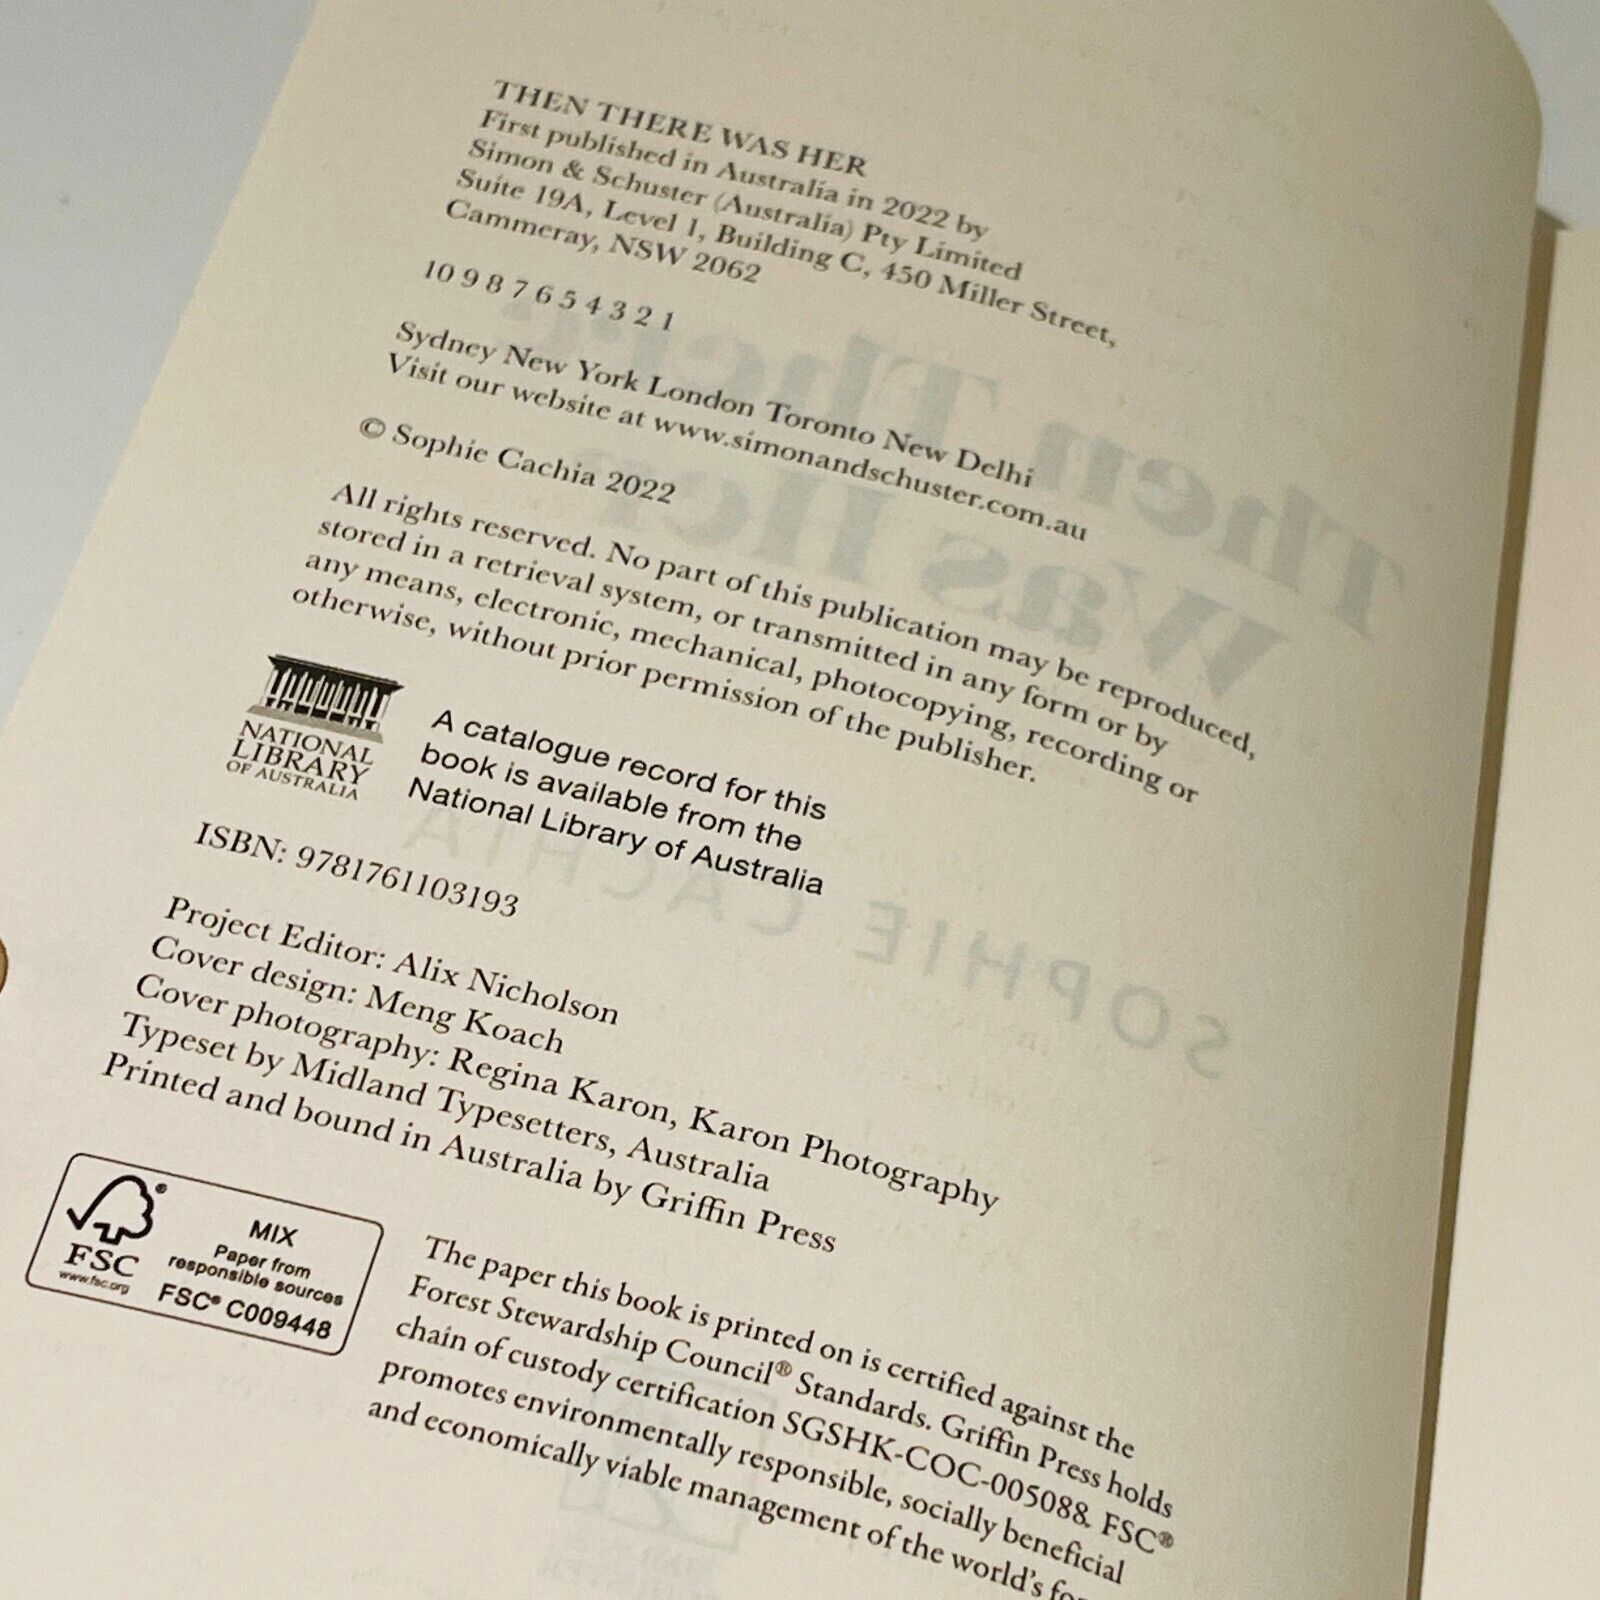 THEN THERE WAS HER
First published in Australia in 2022 by
Simon & Schuster (Australia) Pty Limited
Suite 19A, Level 1, Building C, 450 Miller Street,
Cammeray, NSW 2062
10 9 8 7 6 5 4 3 2 1
Sydney New York London Toronto New Delhi
Visit our website at www.simonandschuster.com.au
© Sophie Cachia 2022
All rights reserved. No part of this publication may be reproduced,
stored in a retrieval system, or transmitted in any form or by
any means, electronic, mechanical, photocopying, recording or
otherwise, without prior permission of the publisher.
NATIONAL
LIBRARY
OF AUSTRALIA
A catalogue record for this
book is available from the
National Library of Australia
ISBN: 9781761103193
Project Editor: Alix Nicholson
Cover design: Meng Koach
Cover photography: Regina Karon, Karon Photography
Typeset by Midland Typesetters, Australia
Printed and bound in Australia by Griffin Press
FSC
www.fsc.org
MIX
Paper from
responsible sources
FSC® C009448
The paper this book is printed on is certified against the
Forest Stewardship Council® Standards. Griffin Press holds
chain of custody certification SGSHK-COC-005088. FSC®
promotes environmentally responsible, socially beneficial
and economically viable management of the world's
Then There
Was Her
SOPHIE CACHIA